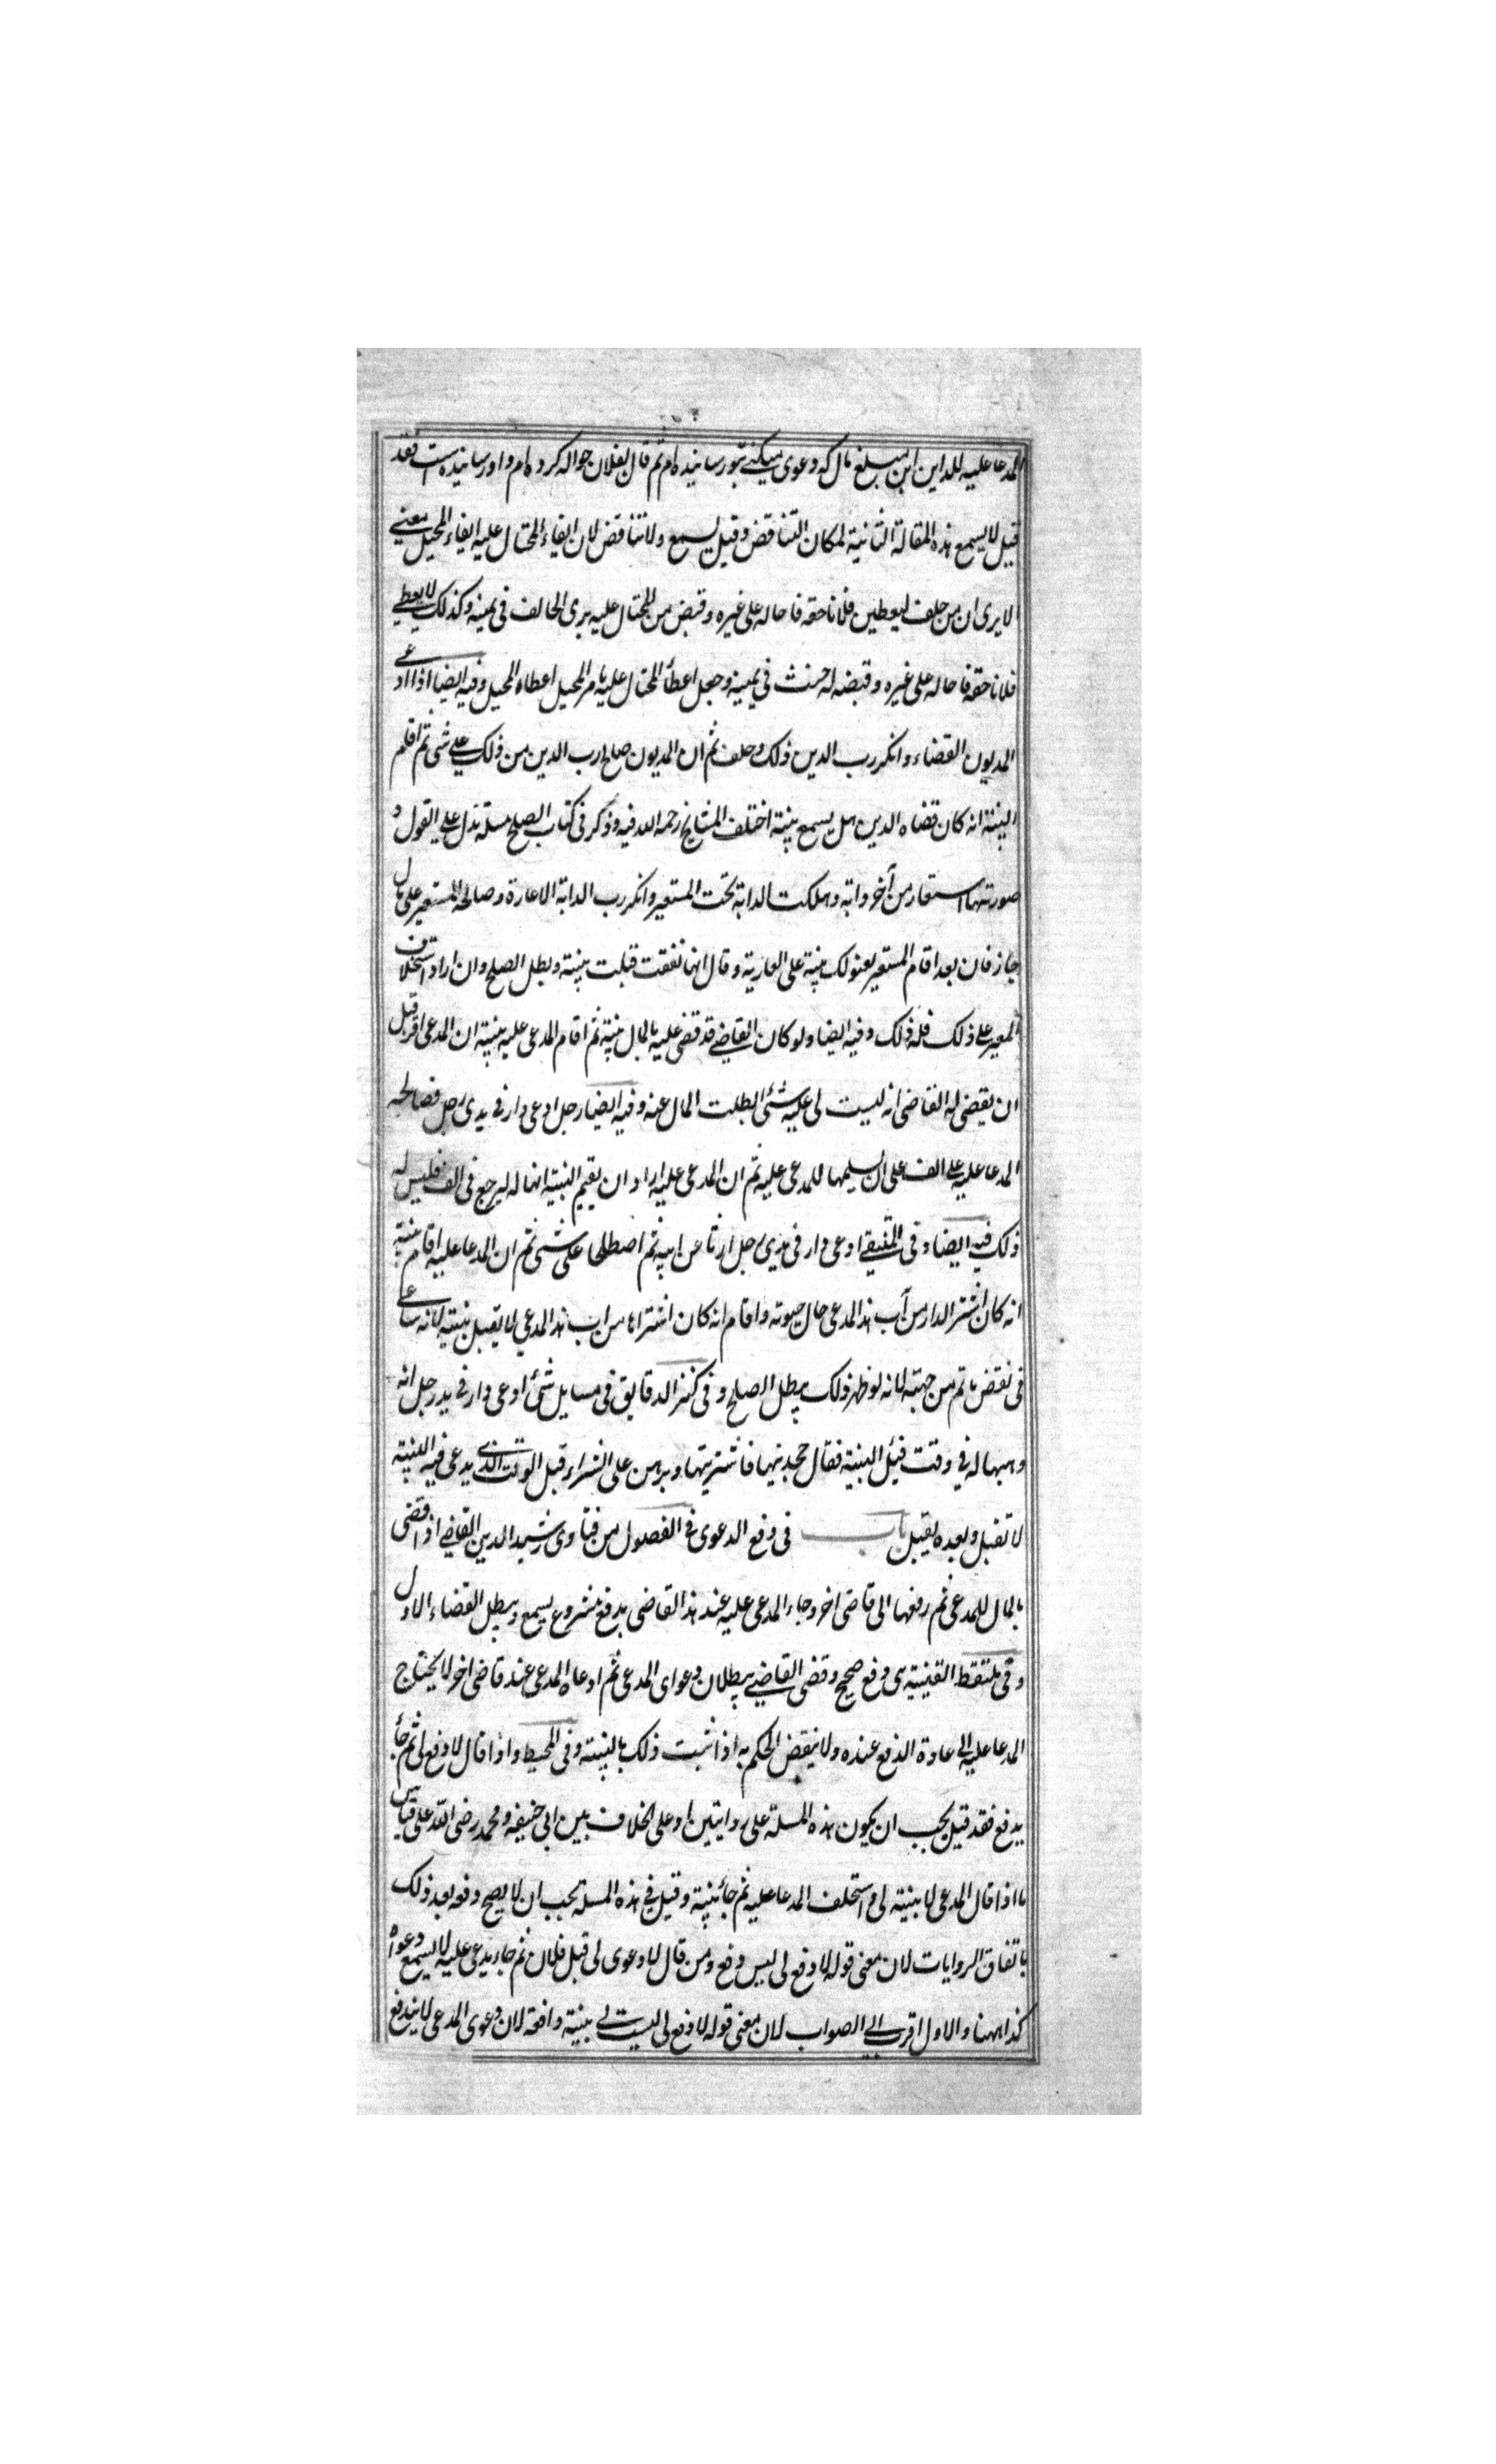 المدعا عليه للداين اين مبلغ مال كه دعوى ميكنے بتو رسانيده ام ثم قال بفلان حواله كرده ام واو رسانيده است فقد
قيل لا يسمع هذه المقالة الثانية لمكان التناقض وقيل يسمع ولا تناقض لان ايفاء المحتال عليه ايفاء المحيل معنے
الا يرى ان من حلف ليعطين فلانا حقه فاحاله على غيره وقبض من المحتال عليه برى الحالف فى يمينه وكذلك لا يعطے
فلانا حقه فاحاله على غيره وقبضه له حنث فى يمينه وجعل اعطاء المحتال عليه بامر المحيل اعطاه المحيل وفيه ايضا اذا ادعے
المديون القضاء وانكر رب الدين ذلك وحلف ثم ان المديون صالح رب الدين من ذلك علے شى ثم اقام
البينة انه كان قضاه الدين هل يسمع بينة اختلف المشايخ رحمه الله فيه وذكر فى كتاب الصلح مسئلة تدل علے القول و
صورتها استعار من آخر دابة وهلكت الدابة تحت المستعير وانكر رب الدابة الاعارة وصالحه المستعير على مال
جاز فان بعد اقام المستعير بينة على العارية وقال انها نفقت قبلت بينة وبطل الصلح وان اراد استحلاف
المعير علے ذلك فله ذلك وفيه ايضا ولو كان القاضے قد قضى عليه بالمال ببينة ثم اقام المدعى عليه ببينة ان المدعى اقر قبل
ان يقضى له القاضى انه ليست لى عليه شئ ابطلت المال عنه وفيه ايضا رجل ادعى دار فے يدى رجل فصالحه
المدعا عليه علے الف على ان يسلمها للمدعى عليه ثم ان المدعى عليه اراد ان يقيم البنية انها له ليرجع فى الف فليس له
ذلك فيه ايضا وفى المنتقے ادعى دار فى يدى رجل ارثا عن ابيه ثم اصطلحا على شى ثم ان المدعا عليه اقام بينة
انه كان اشتر الدار من آب هذا المدعى حال حيوته واقام انه كان اشتراها من اب هذا المدعي لا يقبل بنيته لانه ساعے
فى نقض ما تم من جهته لانه لو ظهر ذلك يبطل الصلح وفى كنز الدقايق فى مسايل شئ ادعى دار فے يد رجل انه
وهبها له فے وقت فسئل البينة فقال جحدنيها فاشتريتها وبرهن على الشراء قبل الوقت الذے يدعى فيه البينة
لا تقبل وبعده يقبل باب فى دفع الدعوى فے الفصول من فتاوى رشيد الدين القاضے اذا قضى
بالمال للمدعى ثم رفعها الى قاضى اخر وجاء المدعى عليه عند هذا القاضى بدفع مشروع يسمع ويبطل القضاء الاول
وفى ملتقط القنية دفع صحيح وقضى القاضے ببطلان دعواى المدعى ثم ادعاه المدعى عند قاضى اخر لا يحتاج
المدعا عليه الے عادة الدفع عنده ولا ينقض الحكم به اذا ثبت ذلك بالبينة وفى المحيط واذا قال لا دفع لى ثم جاء
يدفع فقد قيل يجب ان يكون هذه المسئلة على روايتين او على الخلاف بين ابى حنيفه ومحمد رضى الله على قياس
ما اذا قال المدعى لا بينة لى واستحلف المدعا عليه ثم جاء ببينة وقيل فے هذه المسئلة يجب ان لا يصح دفعه بعد ذلك
باتفاق الروايات لان معنى قوله لا دفع لى ليس دفع ومن قال لا دعوى لى قبل فلان ثم جاء يدعى عليه لا يسمع دعواه
كذا ههنا والاول اقرب الے الصواب لان معنى قوله لا دفع لى ليست لے بينة دافعة لان دعوى المدعى لا يندفع